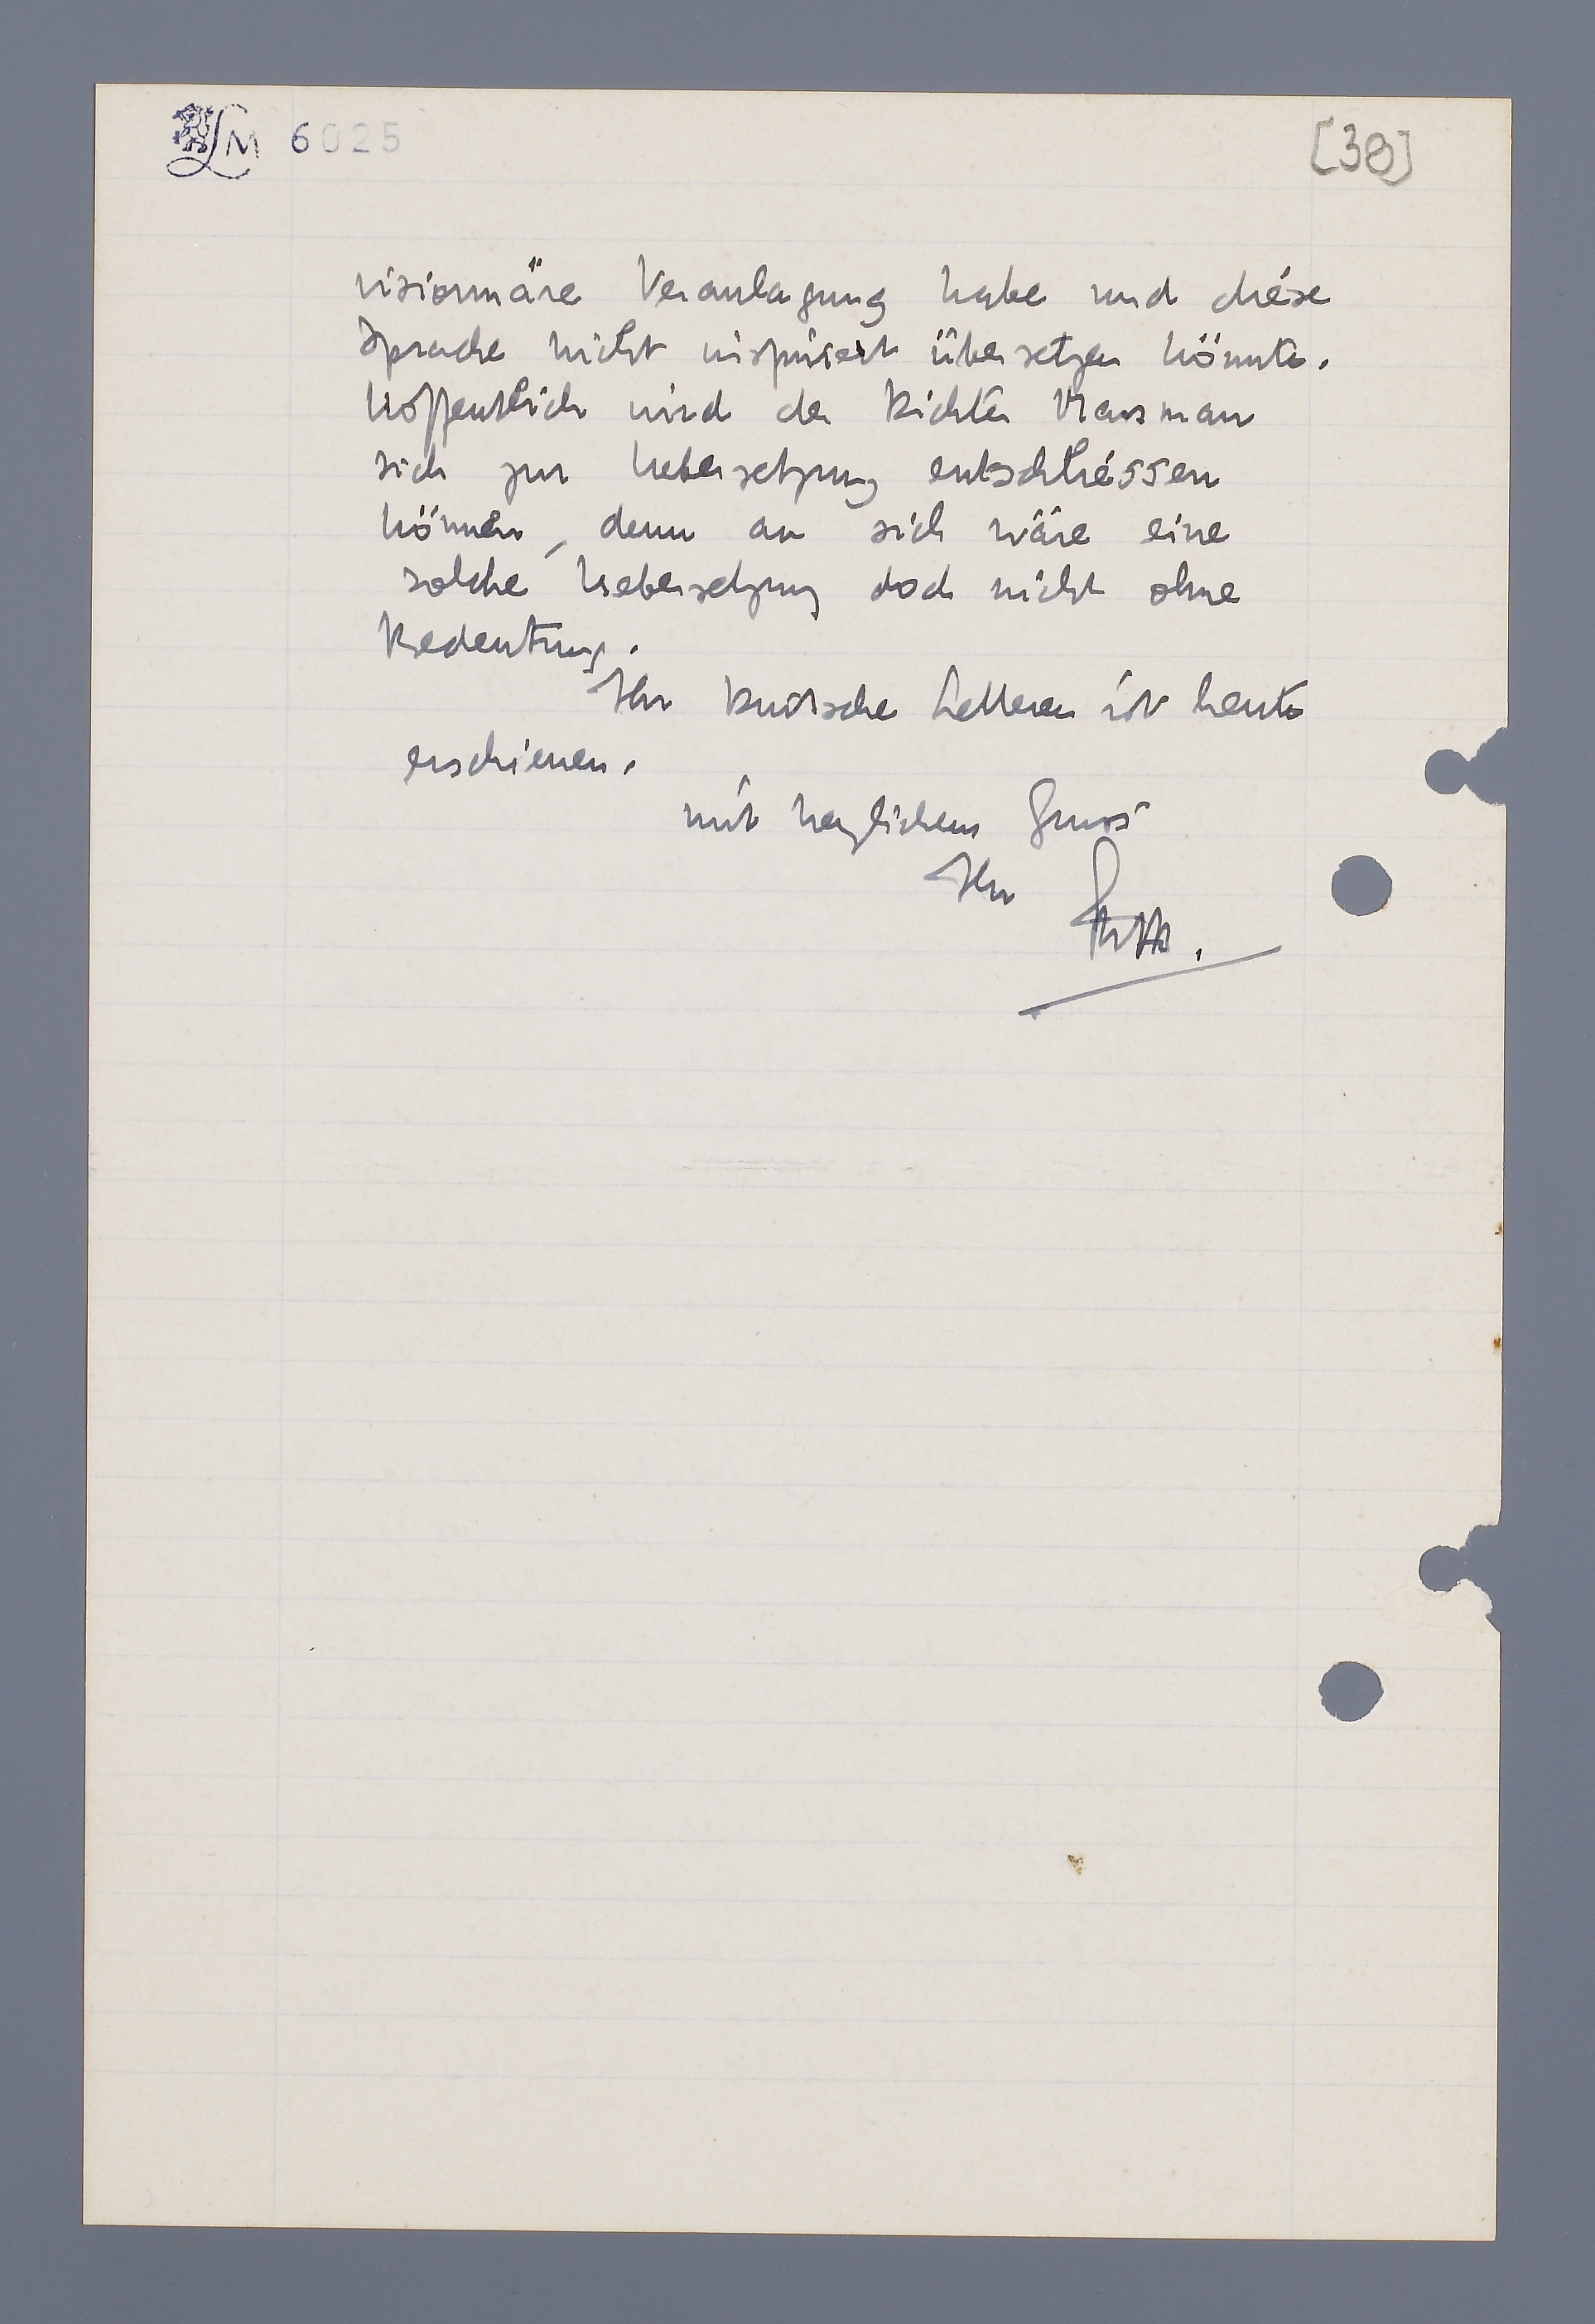 LM 6025
[38]
visionnäre Veranlagung habe und diese
Sprache nicht inspiriert übersetzen könnte.
Hoffentlich wird der Dichter Marsman
sich zur Uebersetzung entschliessen
können, denn an sich wäre eine
solche Uebersetzung doch nicht ohne
Bedeutung.
Ihr Duitsche Letteren ist heute
erschienen.
mit herzlichem Gruss
Ihr